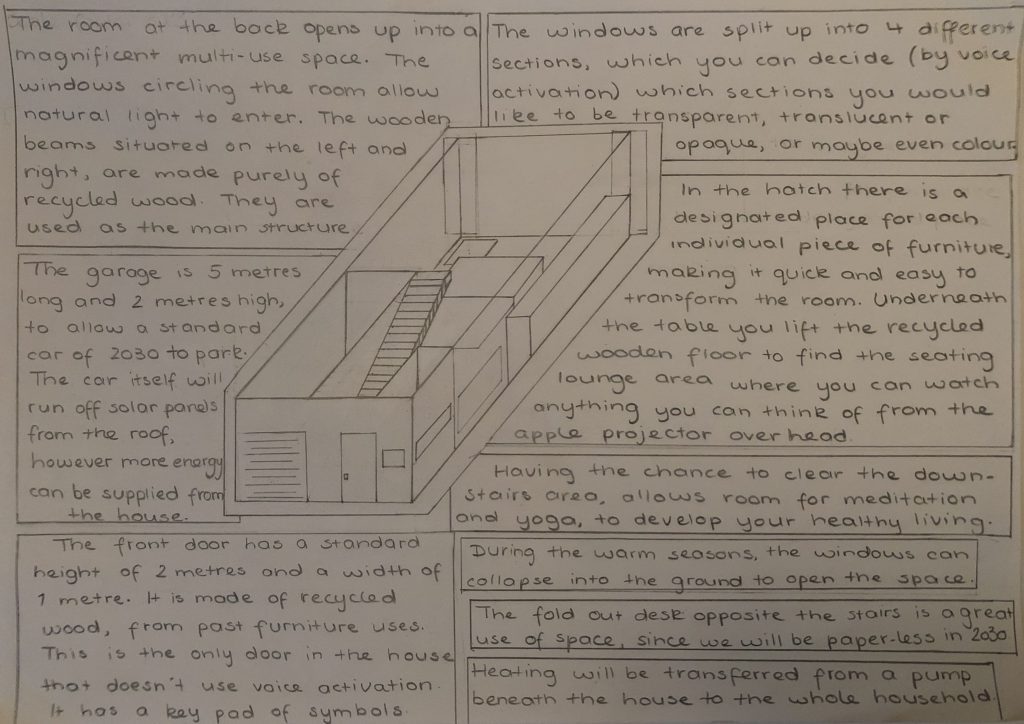 The room at the back opens up into a
magnificent multi-use space. The
windows circling the room allow
natural light to enter. The wooden
beams situated on the left and
right, are made purely of
recycled wood. They are
used as the main structure
The garage is 5 metres
long and 2 metres high,
to allow a standard
car of 2030 to park.
The car itself will
run off solar panels
from the roof,
however more energy
can be supplied from
the house.
The front door has a standard
height of 2 metres and a width of
1 metre. It is made of recycled
wood, from past furniture uses.
This is the only door in the house
that doesn't use voice activation.
It has a key pad of symbols.
The windows are split up into 4 different
sections, which you can decide (by voice
activation) which sections you would
like to be transparent, translucent or
opaque, or maybe even colour
In the hatch there is a
designated place for each
individual piece of furniture,
making it quick and easy to
transform the room. Underneath
the table you lift the recycled
wooden floor to find the seating
lounge area where you can watch
anything you can think of from the
apple projector overhead.
Having the chance to clear the down-
stairs area, allows room for meditation
and yoga, to develop your healthy living.
During the warm seasons, the windows can
collapse into the ground to open the space.
The fold out desk opposite the stairs is a great
use of space, since we will be paper-less in 2030
Heating will be transferred from a pump
beneath the house to the whole household.